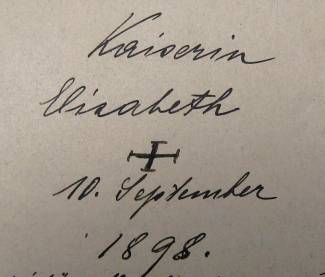 Kaiserin
Elisabeth
10. September
1898.